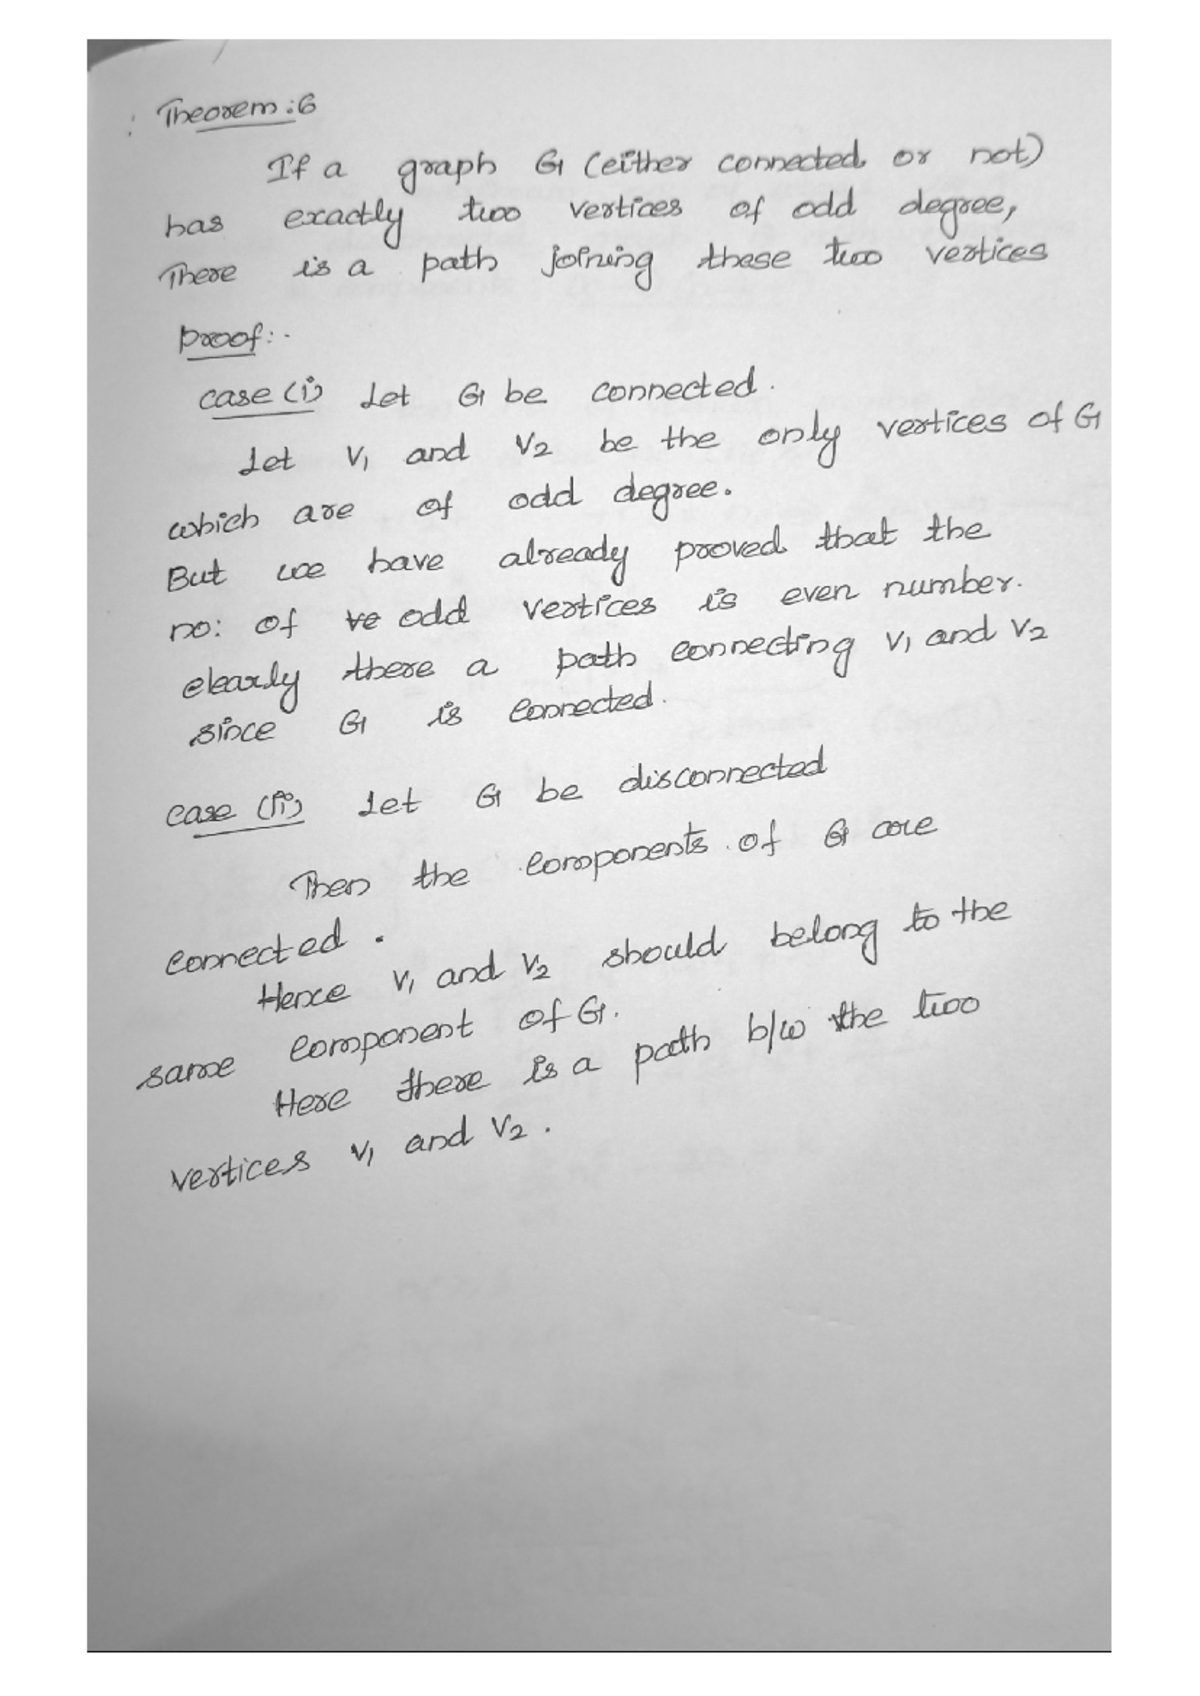 Theorem:6
If a graph G (either connected or not)
has exactly two vertices of odd degree,
There is a path joining these two vertices
proof:-
case (i) Let G be connected.
Let V1 and V2 be the only vertices of G
which are of odd degree.
But we have already proved that the
no: of ve odd vertices is even number.
clearly there a path connecting V1 and V2
since G is connected.
case (ii) Let G be disconnected
Then the components of G are
connected.
Hence V1 and V2 should belong to the
same component of G.
Here there is a path b/w the two
vertices V1 and V2.